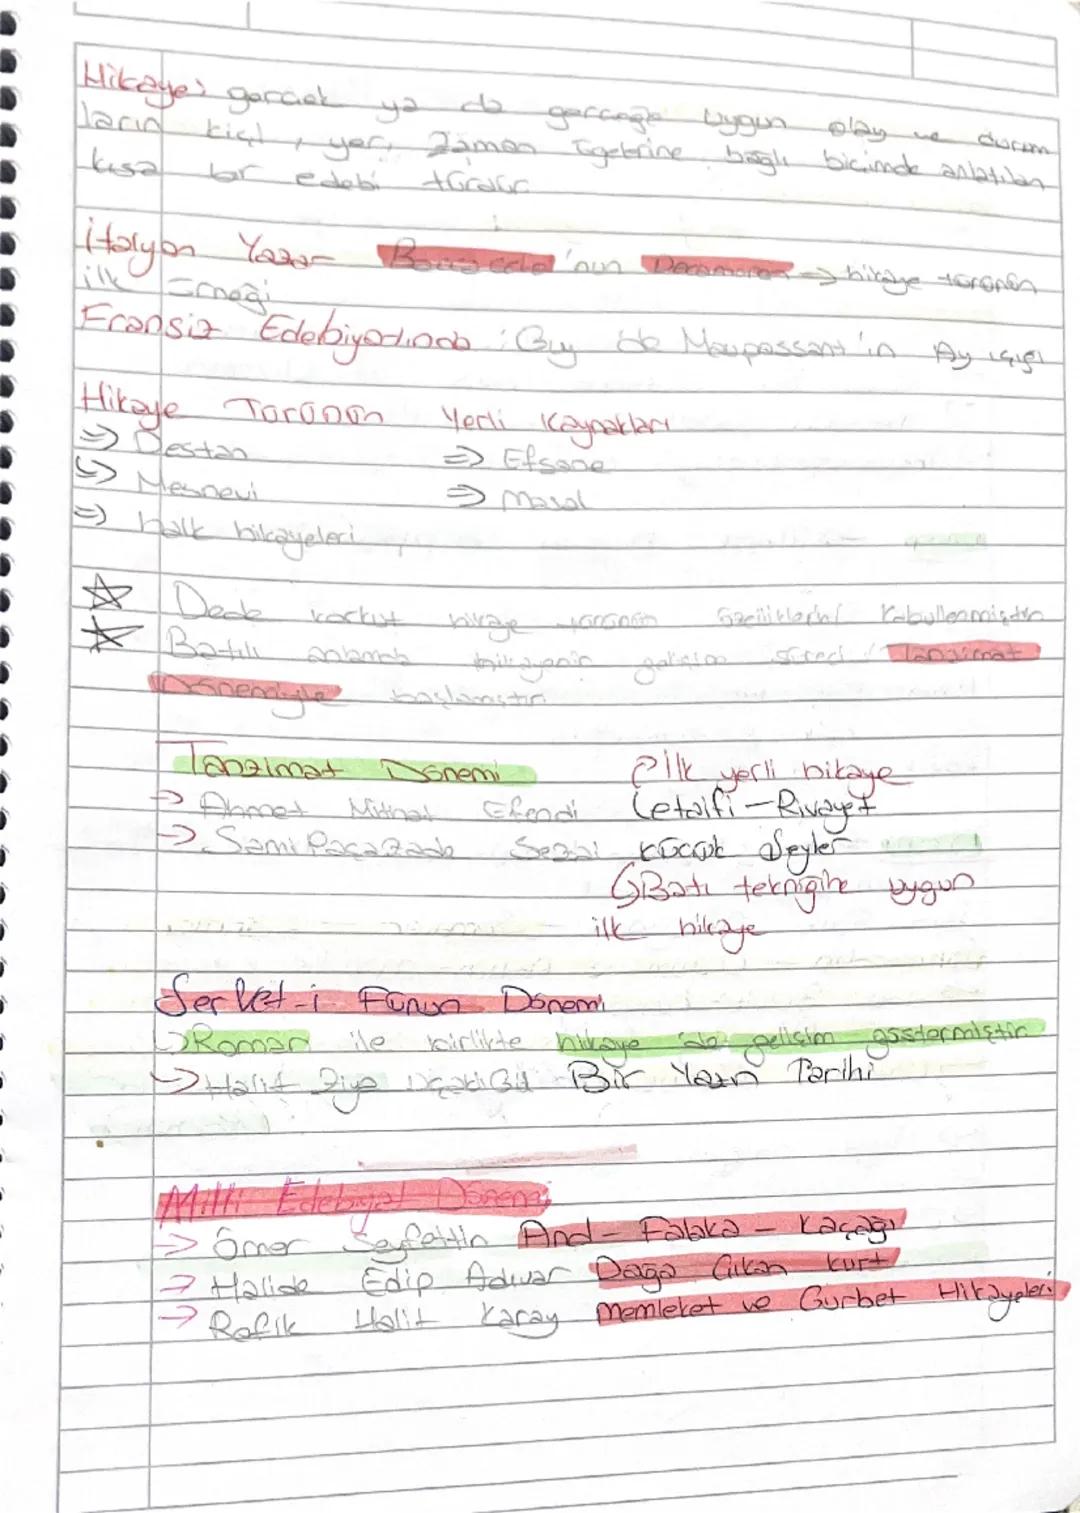 Hikaye: gerçek ya da gerçeğe uygun olay ve durum
ların kişi, yer, zaman ögelerine bağlı biçimde anlatılan
kısa bir edebi türdür
İtalyan Yazar Boccaccio'nun Decameron → hikaye türünün
ilk örneği
Fransız Edebiyatında: Guy de Maupassant'ın Ay ışığı
Hikaye Türünün Yerli Kaynakları
⇒ Destan ⇒ Efsane
⇒ Mesnevi ⇒ Masal
⇒ halk hikayeleri
☆ Dede korkut hikaye türünün özelliklerini Kabullenmiştir
☆ Batılı anlamda hikayenin gelişim süreci Tanzimat
Dönemiyle başlamıştır.
Tanzimat Dönemi → İlk yerli hikaye
→ Ahmet Mithat Efendi Letaifi-Rivayet
→ Sami Paşazade Sezai küçük Şeyler
↳ Batı tekniğine uygun
ilk hikaye
Servet-i Fünun Dönemi
→ Roman ile birlikte hikaye de gelişim göstermiştir
→ Halit Ziya Uşaklıgil Bir Yazın Tarihi
Milli Edebiyat Dönemi
→ Ömer Seyfettin And - Falaka - Kaçağı
→ Halide Edip Adıvar Dağa Çıkan Kurt
→ Refik Halit Karay memleket ve Gurbet Hikayeleri